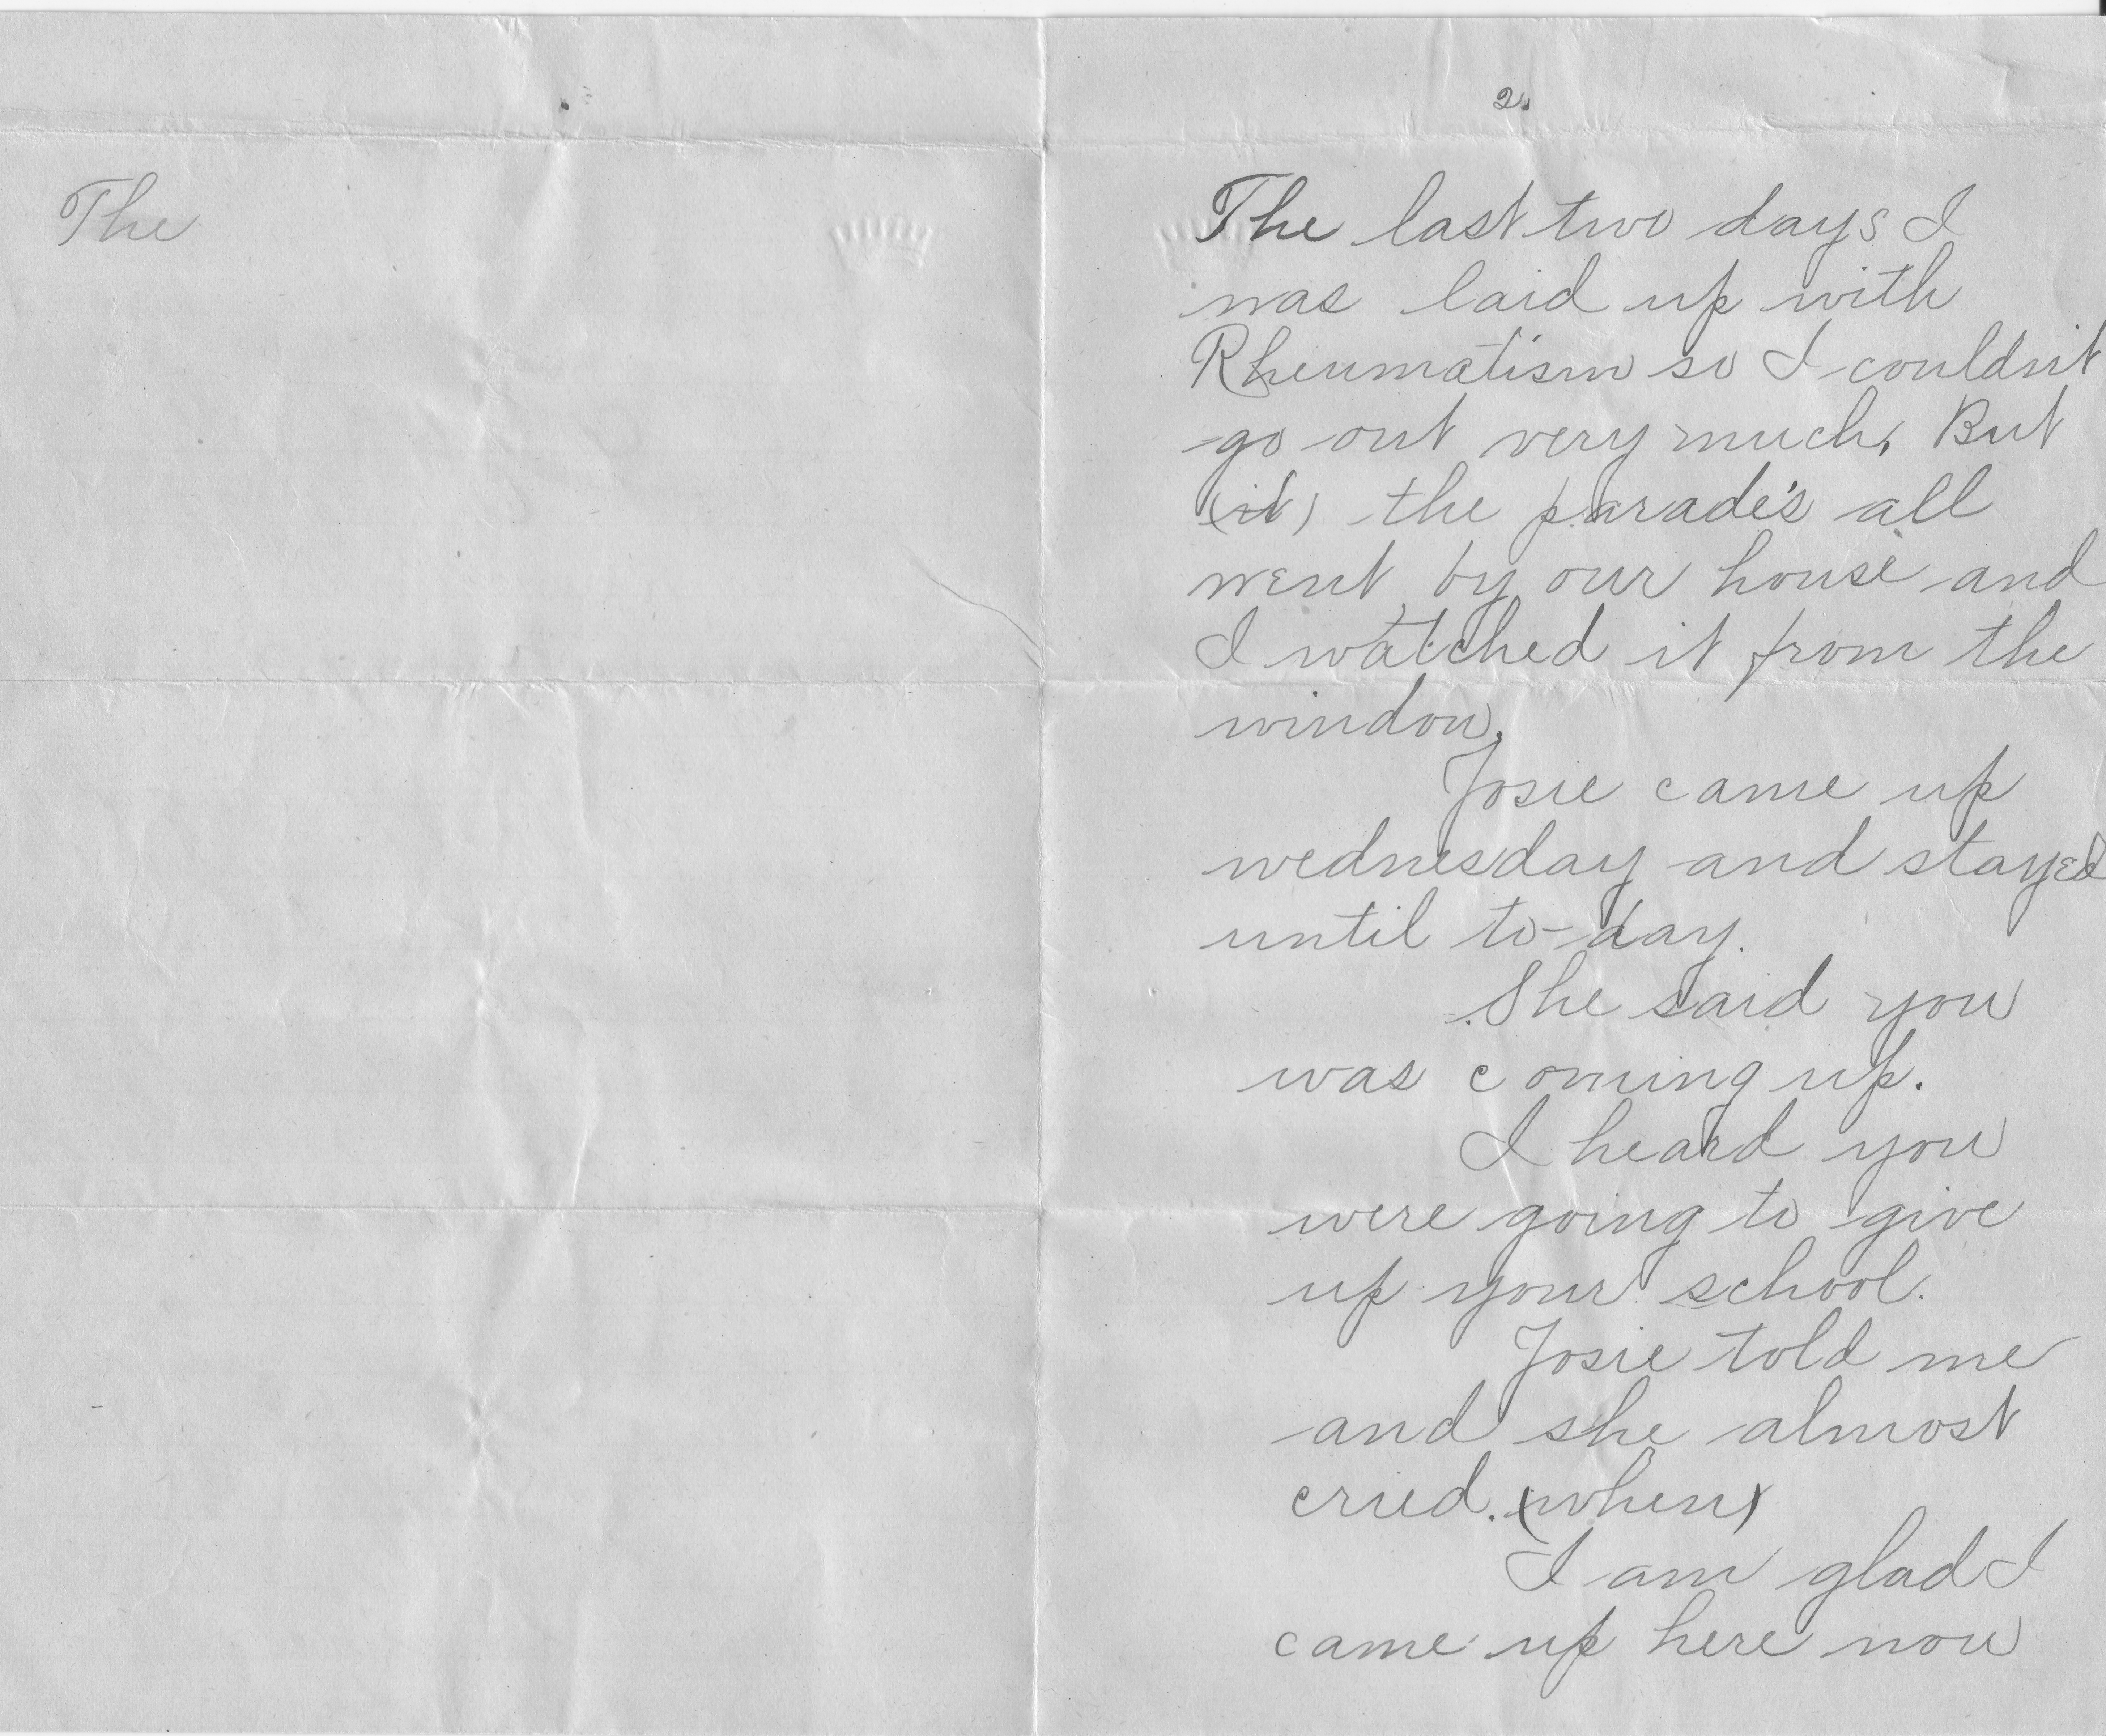 The
2.
The last two days I
was laid up with
Rheumatism so I couldn't
go out very much, But
(it) the parade's all
went by our house and
I watched it from the
window.
Josie came up
wednesday and stayed
until to-day.
She said you
was coming up.
I heard you
were going to give
up your school.
Josie told me
and she almost
cried. (when)
I am glad I
came up here now